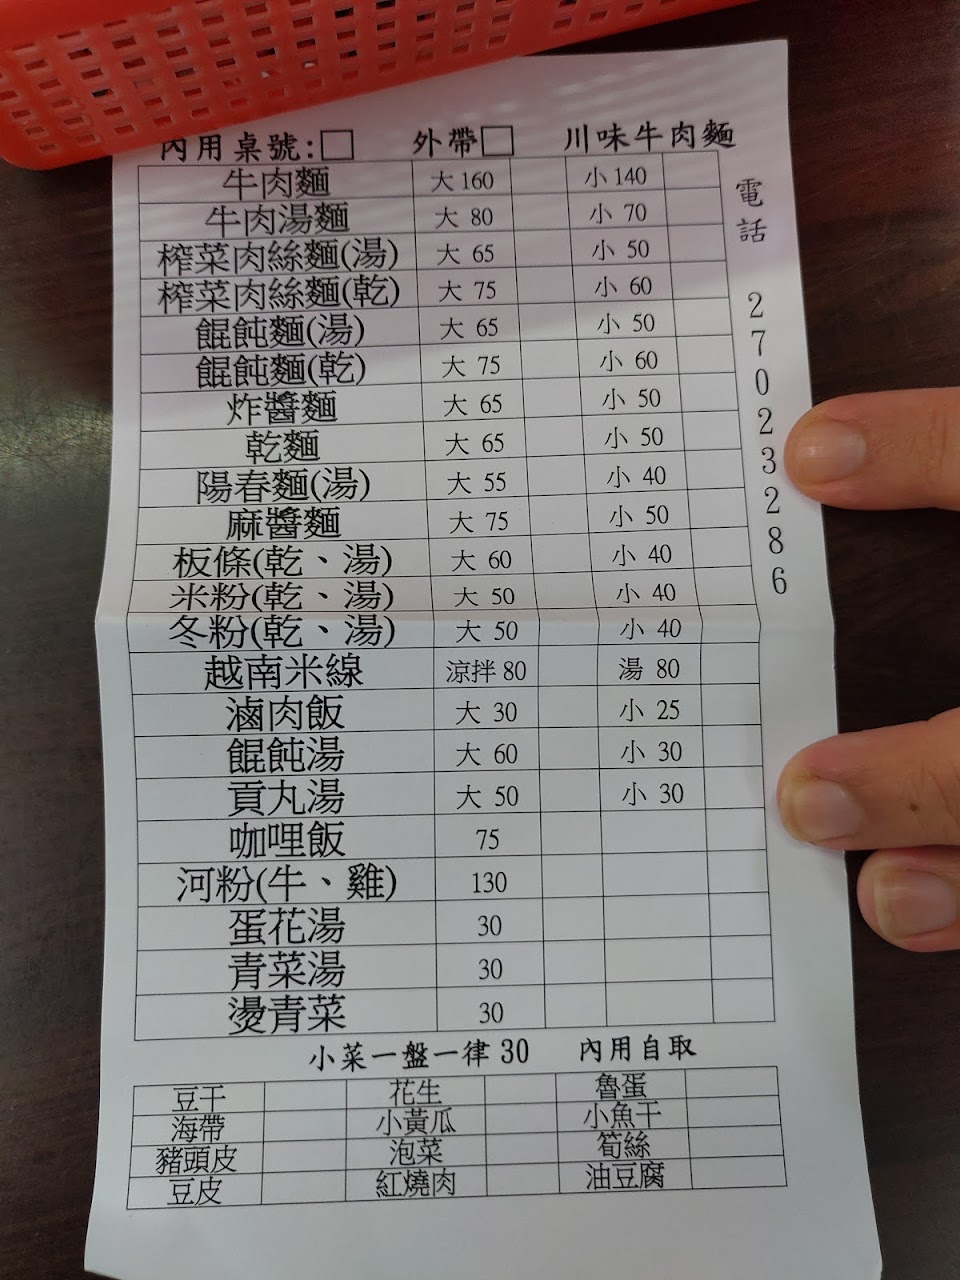 內用桌號:□ 外帶□ 川味牛肉麵
電話 27023286
牛肉麵 大 160 小 140
牛肉湯麵 大 80 小 70
榨菜肉絲麵(湯) 大 65 小 50
榨菜肉絲麵(乾) 大 75 小 60
餛飩麵(湯) 大 65 小 50
餛飩麵(乾) 大 75 小 60
炸醬麵 大 65 小 50
乾麵 大 65 小 50
陽春麵(湯) 大 55 小 40
麻醬麵 大 75 小 50
板條(乾、湯) 大 60 小 40
米粉(乾、湯) 大 50 小 40
冬粉(乾、湯) 大 50 小 40
越南米線 涼拌 80 湯 80
滷肉飯 大 30 小 25
餛飩湯 大 60 小 30
貢丸湯 大 50 小 30
咖哩飯 75
河粉(牛、雞) 130
蛋花湯 30
青菜湯 30
燙青菜 30
小菜一盤一律 30 內用自取
豆干 花生 魯蛋
海帶 小黃瓜 小魚干
豬頭皮 泡菜 筍絲
豆皮 紅燒肉 油豆腐